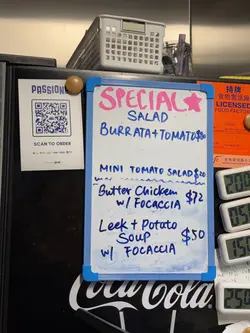 PASSION
SCAN TO ORDER
SPECIAL
SALAD
BURRATA + TOMATO
MINI TOMATO SALAD
Butter Chicken $72
w/ FOCACCIA
Leek + Potato
SOUP $50
w/ FOCACCIA
特牌
LICENSED
Coca-Cola